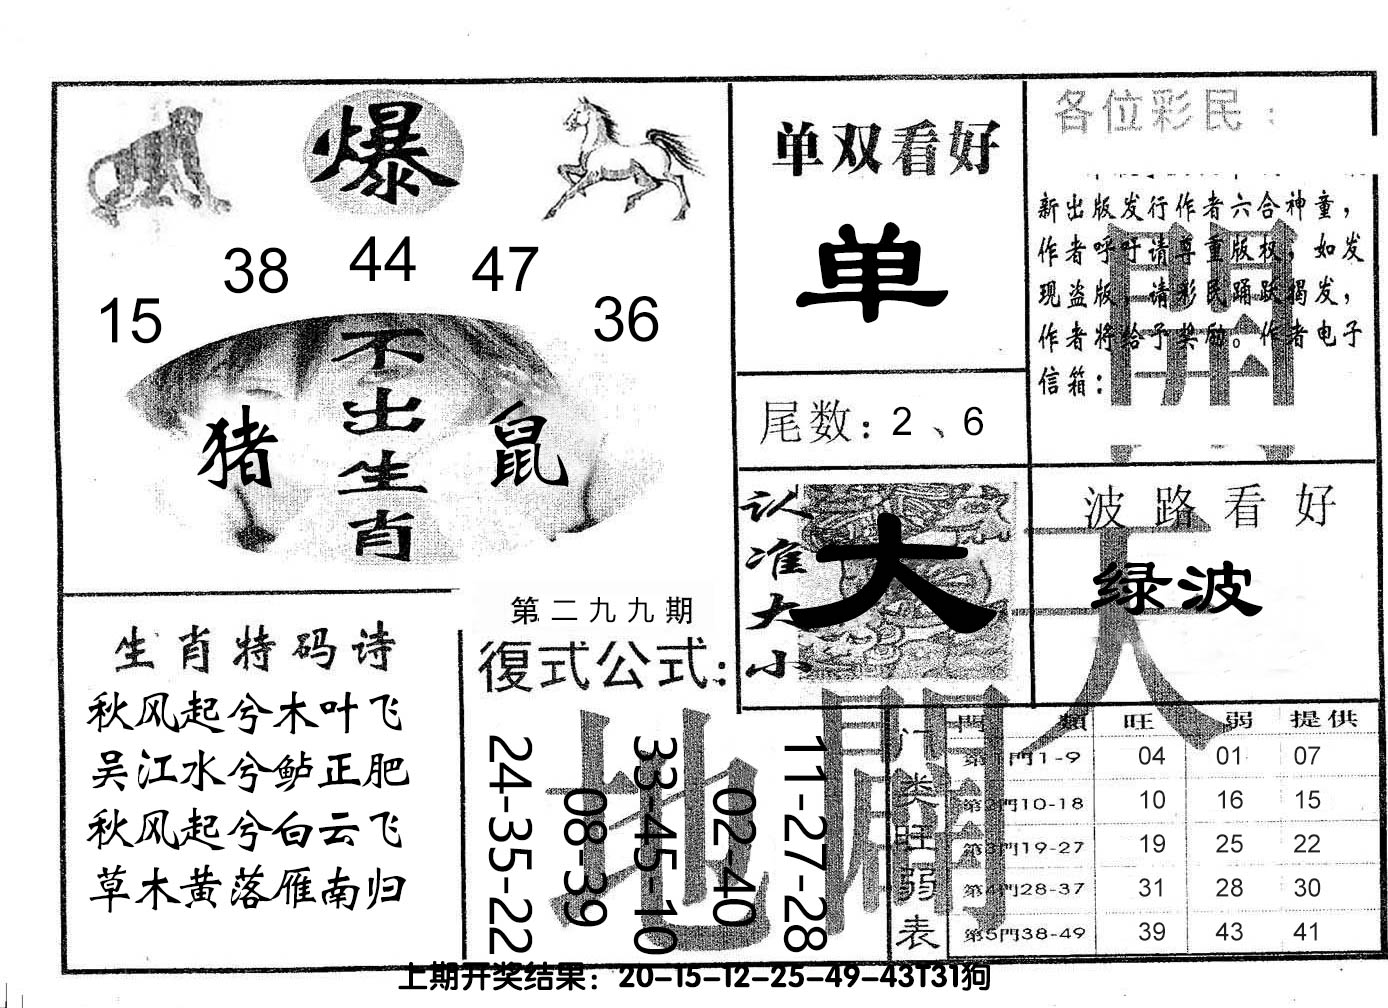 爆
38 44 47
15 36
不出生肖
猪 鼠
单双看好
单
尾数: 2、6
各位彩民:
新出版发行作者六合神童,
作者呼吁请尊重版权, 如发
现盗版, 请彩民踊跃揭发,
作者将给予奖励。作者电子
信箱:
認准大小
大
波路看好
绿波
天
開
生肖特码诗
秋风起兮木叶飞
吴江水兮鲈正肥
秋风起兮白云飞
草木黄落雁南归
第二九九期
復式公式:
24-35-22
08-39
33-45-10
02-40
11-27-28
地
門类旺弱表
門 類 旺 弱 提供
第1門1-9 04 01 07
第2門10-18 10 16 15
第3門19-27 19 25 22
第4門28-37 31 28 30
第5門38-49 39 43 41
上期开奖结果: 20-15-12-25-49-43T31狗